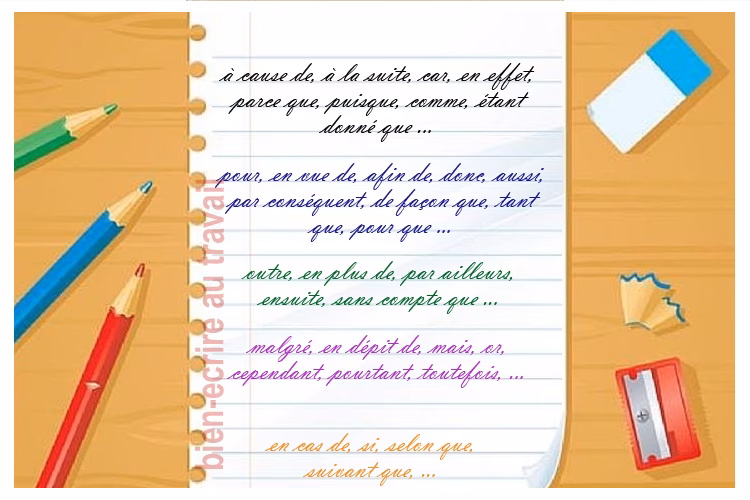 à cause de, à la suite, car, en effet,
parce que, puisque, comme, étant
donné que ...
pour, en vue de, afin de, donc, aussi,
par conséquent, de façon que, tant
que, pour que ...
outre, en plus de, par ailleurs,
ensuite, sans compte que ...
malgré, en dépit de, mais, or,
cependant, pourtant, toutefois, ...
en cas de, si, selon que,
suivant que, ...
bien-ecrire au travail